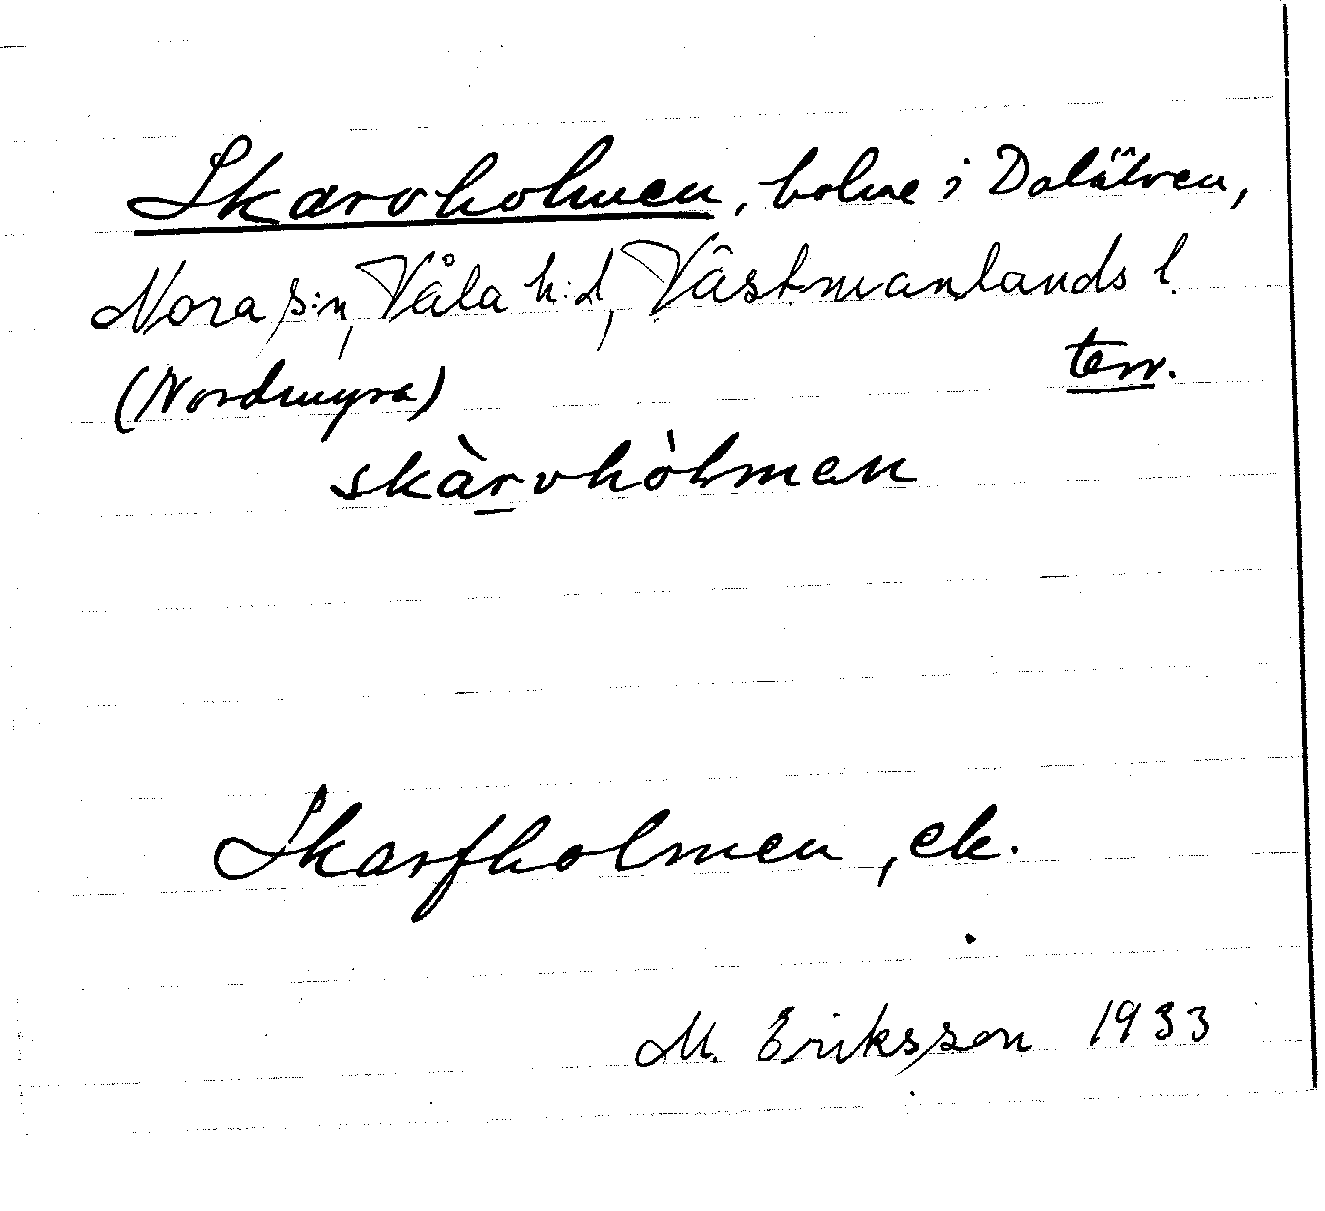 Skarvholmen, holme i Dalälven,
Nora s:n, Våla h:d, Västmanlands l.
(Nordmyra) terr.
skàrvhòlmen
Skarfholmen, ek.
M. Eriksson 1933